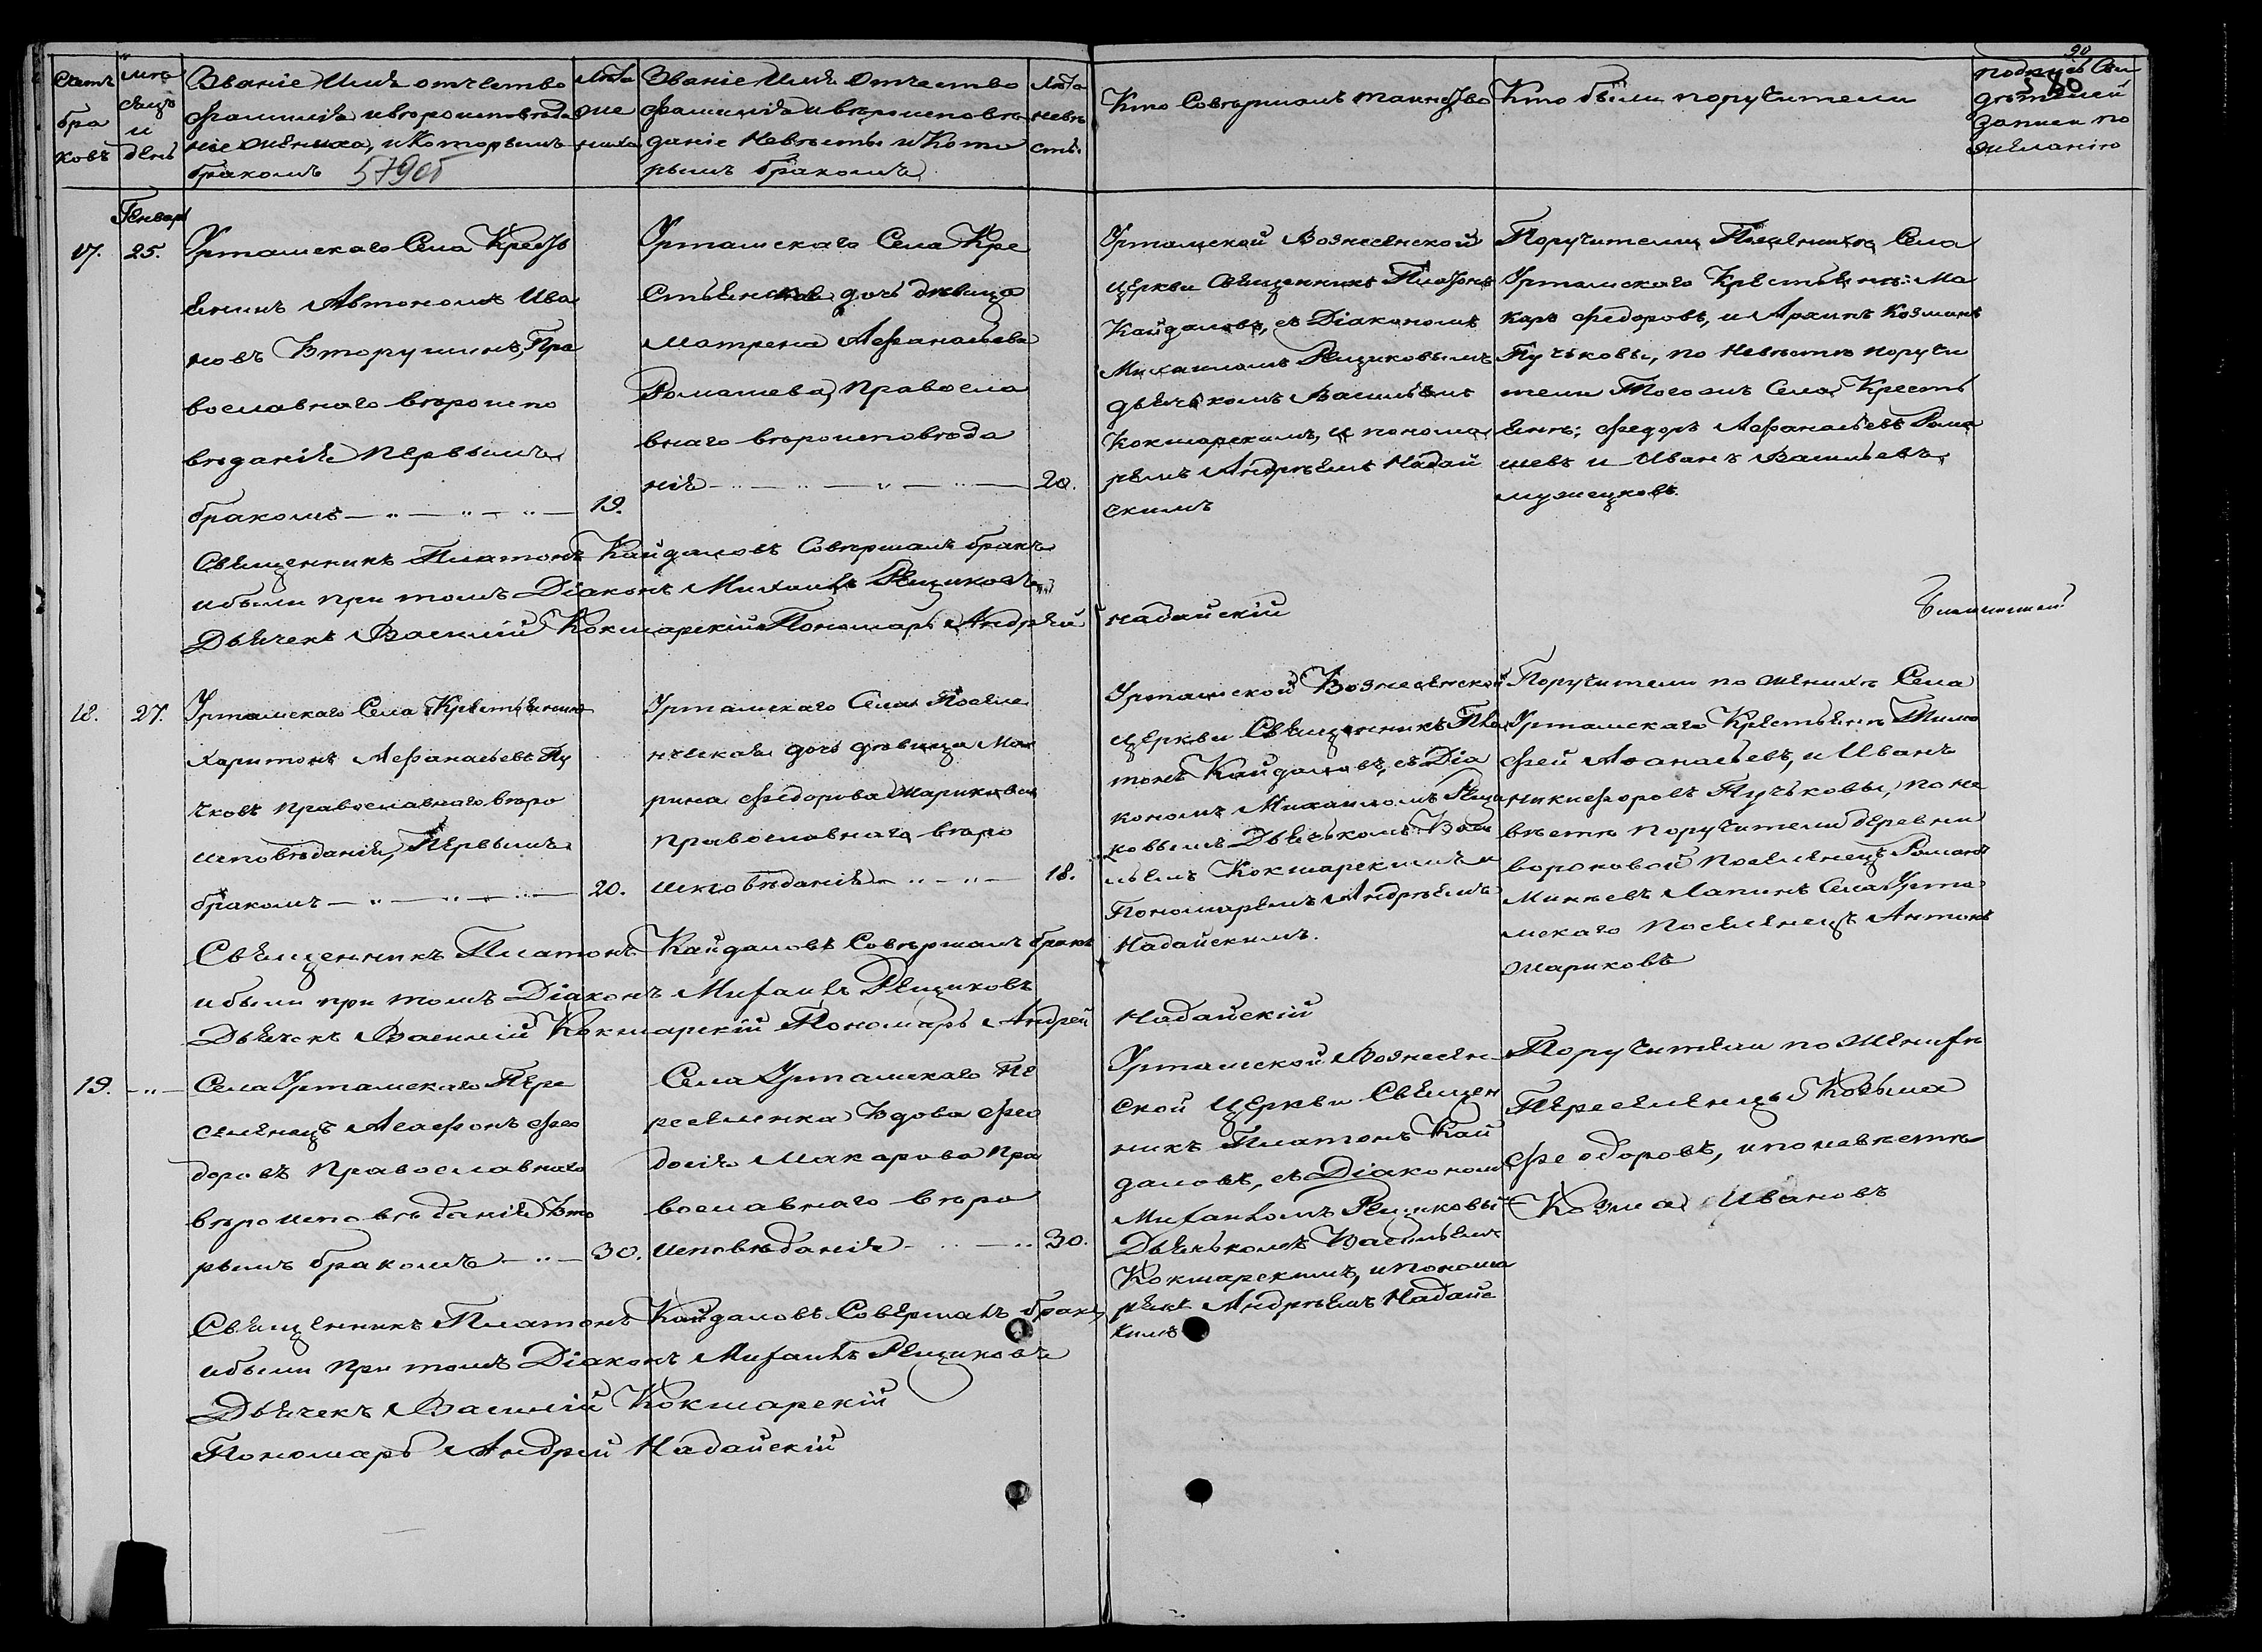 90
80
Счетъ
бра
ковъ
мѣ
сяцъ
и
день
Званіе Имя отчество
фамилія и вѣроисповѣда
ніе жениха, и Которымъ
бракомъ
Лѣта
же
ниха
Званіе Имя Отчество
фамилія и вѣроисповѣ
даніе Невѣсты и Кото
рымъ бракомъ
Лѣта
невѣ
сты
Кто Совершалъ таинство
Кто были поручители
подпись Сви
дѣтелей
записи по
желанію
Генваря
17.
25.
Уртамскаго Села Кресть
янинъ Автономъ Ива
новъ Вторушинъ, Пра
вославнаго вѣроиспо
вѣданія Первымъ
бракомъ
19.
Уртамскаго Села Кре
стьянская дочь дѣвица
Матрена Афанасьева
Ромашева, Правосла
внаго вѣроисповѣда
нія
20.
Уртамской Вознесенской
церкви Священникъ Платонъ
Кайдаловъ, съ Діакономъ
Михаиломъ Рещиковымъ
дьячькомъ Васильемъ
Кокшарскимъ, и понома
ремъ Андрѣемъ Надай
скимъ
Поручители По женихѣ Села
Уртамскаго Крестьяне: Ма
каръ Федоровъ, и Архипъ Козминъ
Пучьковы, по Невѣстѣ поручи
тели Тогожъ Села Кресть
яне: Федоръ Афанасьевъ Рома
шевъ и Иванъ Васильевъ
Священникъ Платонъ Кайдаловъ Совершалъ бракъ
и были при томъ Діаконъ Михаилъ Рещиковъ
Дьячекъ Василій Кокшарскій Пономарь Андрей Надайскій
18.
27.
Уртамскаго Села Крестьянинъ
Харитонъ Афанасьевъ Пу
чковъ православнаго вѣро
исповѣданія, Первымъ
бракомъ
20.
Уртамскаго Села Поселе
нческая дочь дѣвица Ма
рина Федорова Жарикова
православнаго вѣро
исповѣданія
18.
Уртамской Вознесенской
церкви Священникъ Пла
тонъ Кайдаловъ, съ Діа
кономъ Михаиломъ Рещи
ковымъ Дьячькомъ Васи
льемъ Кокшарскимъ и
Пономаремъ Андрѣемъ
Надайскимъ.
Поручители по женихѣ Села
Уртамскаго Крестьяне Тимо
фей Афанасьевъ, и Иванъ
Никифоровъ Пучьковы, по не
вѣстѣ поручители деревни
Вороновой поселенецъ Романъ
Минѣевъ Лапинъ Села Урта
мскаго Поселенецъ Антонъ
Жариковъ
Священникъ Платонъ Кайдаловъ Совершалъ бракъ
и были при томъ Діаконъ Михаилъ Рещиковъ
Дьячекъ Василій Кокшарскій Пономарь Андрей Надайскій
19.
Села Уртамскаго Пере
селенецъ Агафонъ Фео
доровъ Православнаго
вѣроисповѣданія Вто
рымъ бракомъ
30.
Села Уртамскаго Пе
реселенка Вдова Фео
досія Макарова Пра
вославнаго вѣро
исповѣданія
30.
Уртамской Вознесен
ской Церкви Священ
никъ Платонъ Кай
даловъ, съ Діакономъ
Михаиломъ Рещиковы
Дьячькомъ Васильемъ
Кокшарскимъ, и понома
ремъ Андрѣемъ Надайс
кимъ
Поручители по Женихѣ
Переселенцы Козьма
Феодоровъ, и по невѣстѣ
Козма Ивановъ
Священникъ Платонъ Кайдаловъ Совершалъ бракъ,
и были при томъ Діаконъ Михаилъ Рещиковъ
Дьячекъ Василій Кокшарскій
Пономарь Андрей Надайскій